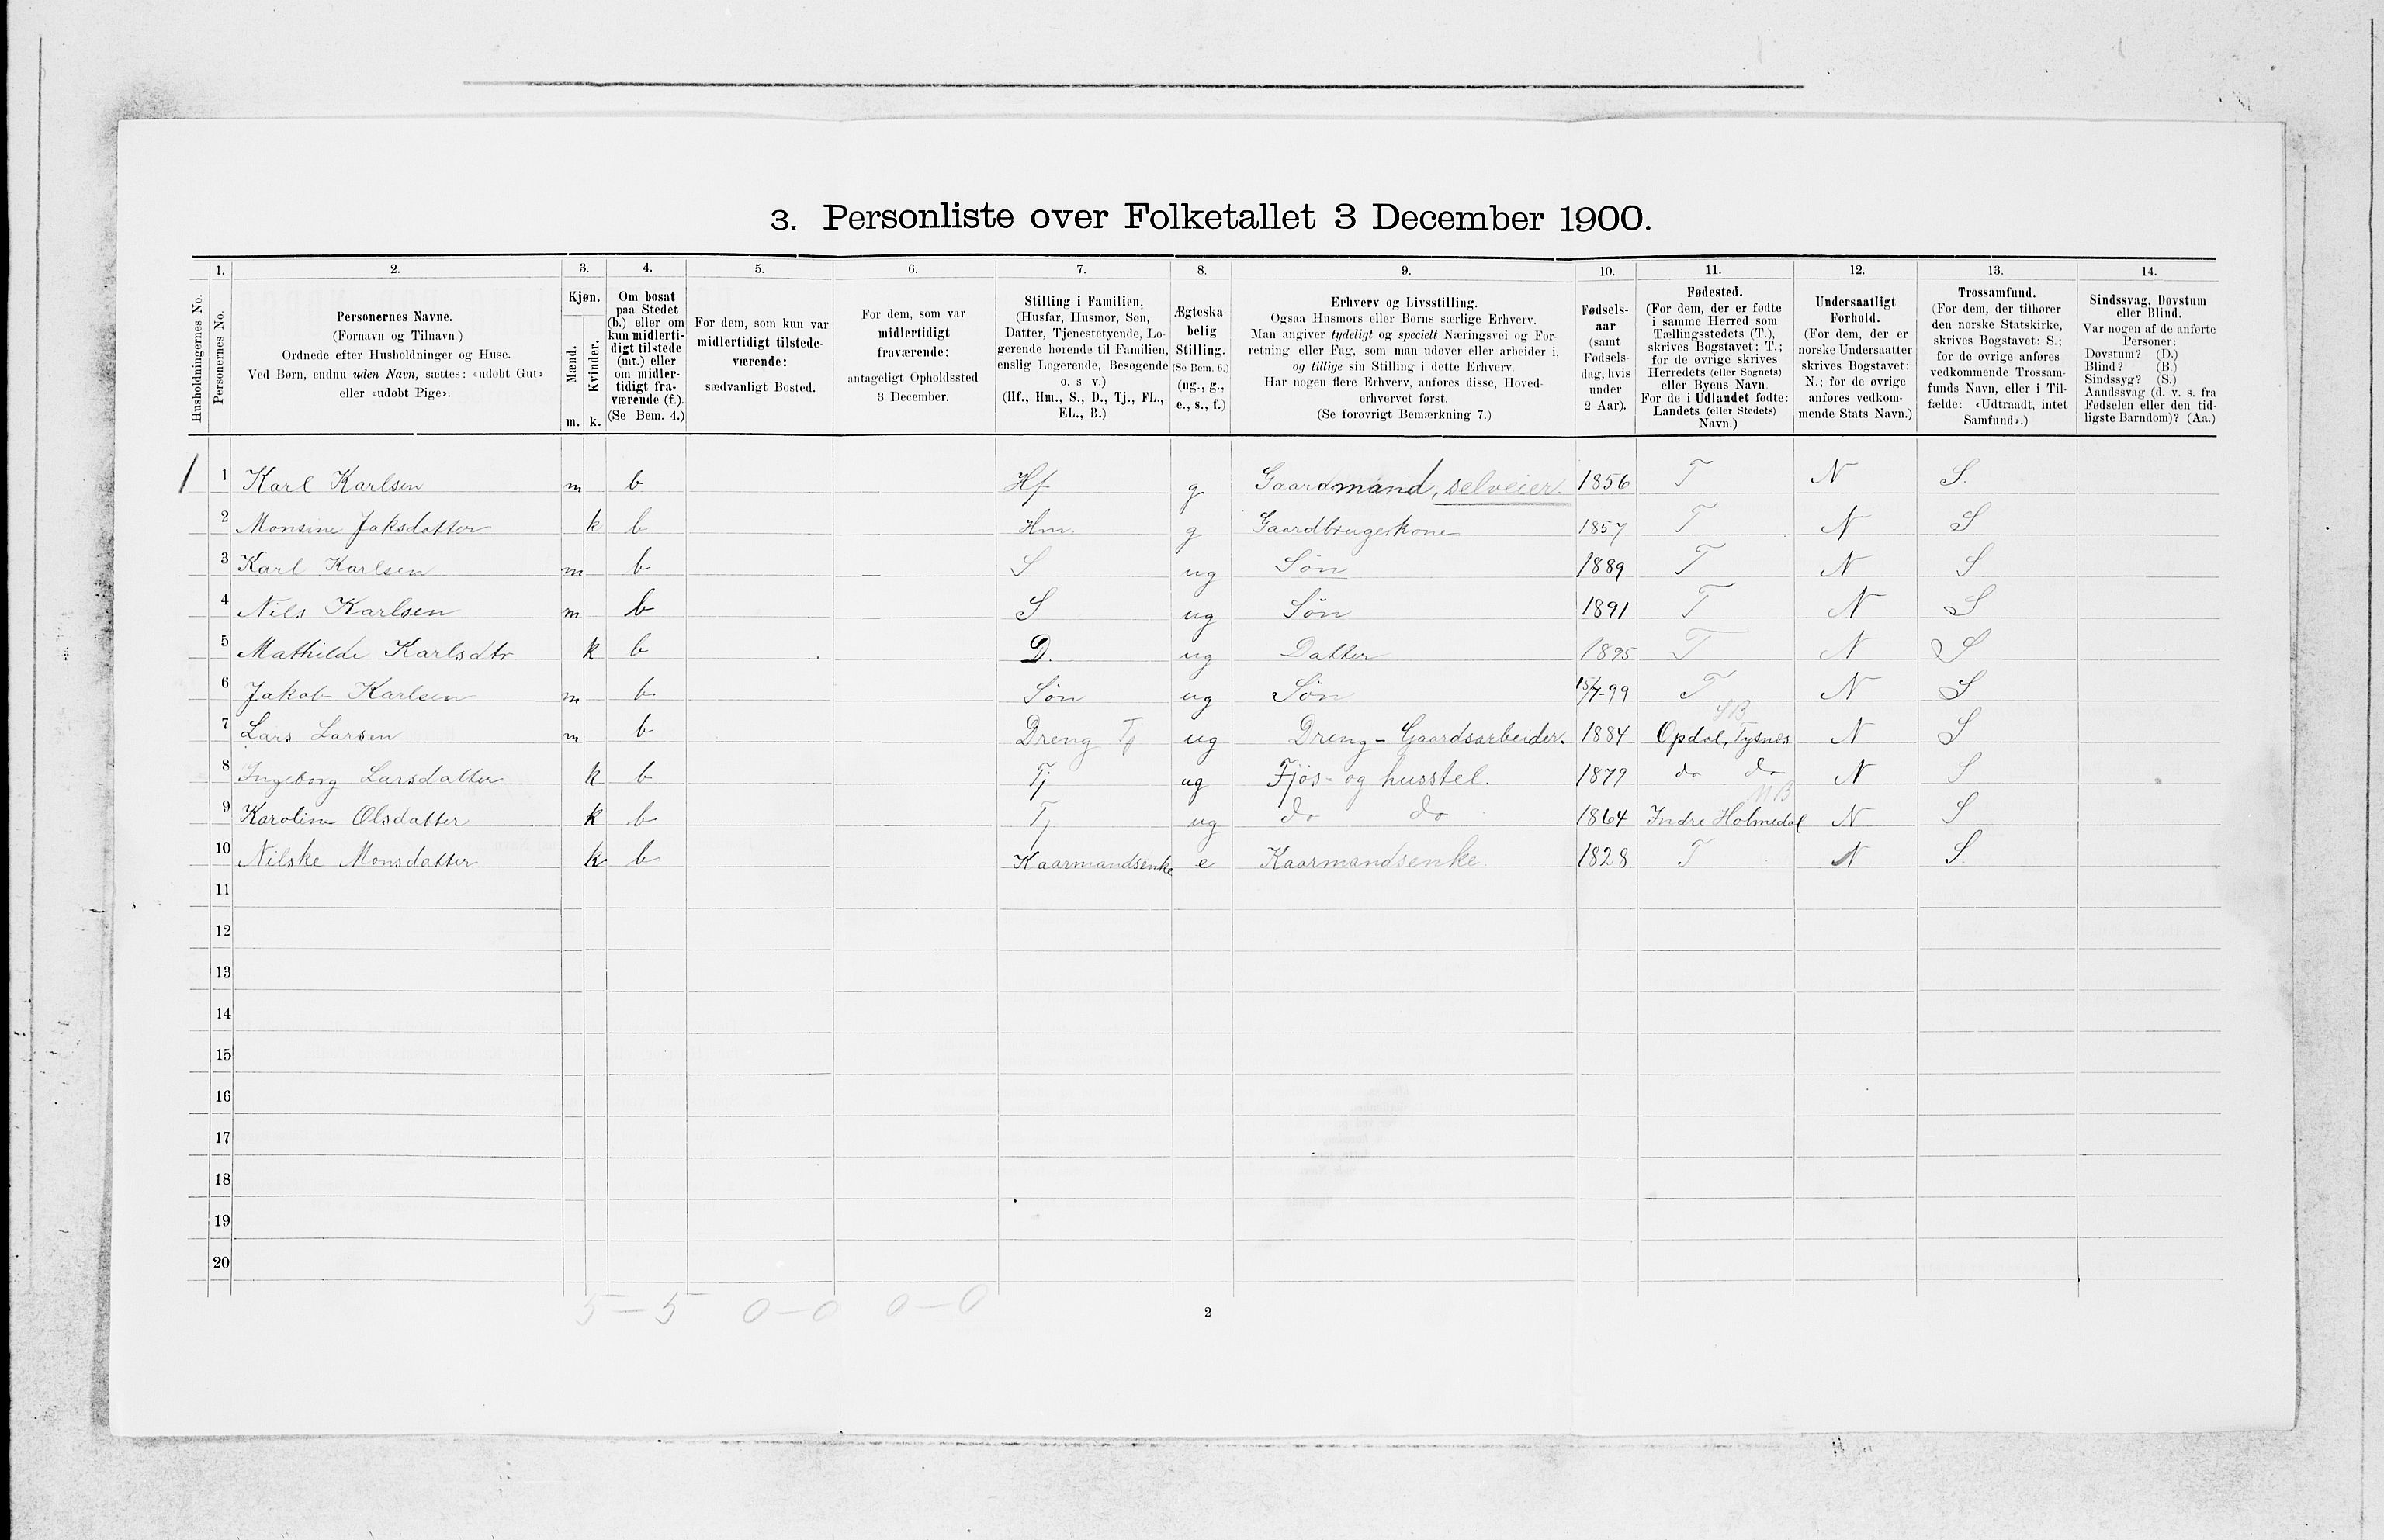 3. Personliste over Folketallet 3 December 1900.
1. 2. 3. 4. 5. 6. 7. 8. 9. 10. 11. 12. 13. 14.
Husholdningernes No.
Personernes No.
Personernes Navne.
(Fornavn og Tilnavn)
Ordnede efter Husholdninger og Huse.
Ved Børn, endnu uden Navn, sættes: «udøbt Gut»
eller «udøbt Pige».
Kjøn.
Mænd.
Kvinder.
m. k.
Om bosat
paa Stedet
(b.) eller om
kun midlerti-
digt tilstede
(mt.) eller
om midler-
tidigt fra-
værende (f.).
(Se Bem. 4.)
For dem, som kun var
midlertidigt tilstede-
værende:
sædvanligt Bosted.
For dem, som var
midlertidigt
fraværende:
antageligt Opholdssted
3 December.
Stilling i Familien.
(Husfar, Husmor, Søn,
Datter, Tjenestetyende, Lo-
gerende hørende til Familien,
enslig Logerende, Besøgende
o. s v.)
(Hf., Hm., S., D., Tj., FL.,
EL., B.)
Ægteska-
belig
Stilling.
(Se Bem. 6.)
(ug., g.,
e., s., f.)
Erhverv og Livsstilling.
Ogsaa Husmors eller Børns særlige Erhverv.
Man angiver tydeligt og specielt Næringsvei og For-
retning eller Fag, som man udøver eller arbeider i,
og tillige sin Stilling i dette Erhverv.
Har nogen flere Erhverv, anføres disse, Hoved-
erhvervet først.
(Se forøvrigt Bemærkning 7.)
Fødsels-
aar
(samt
Fødsels-
dag, hvis
under
2 Aar).
Fødested.
(For dem, der er fødte
i samme Herred som
Tællingsstedets (T.),
skrives Bogstavet: T.;
for de øvrige skrives
Herredets (eller Sognets)
eller Byens Navn.
For de i Udlandet fødte:
Landets (eller Stedets)
Navn.)
Undersaatligt
Forhold.
(For dem, der er
norske Undersaatter
skrives Bogstavet:
N.; for de øvrige
anføres vedkom-
mende Stats Navn.)
Trossamfund.
(For dem, der tilhører
den norske Statskirke,
skrives Bogstavet: S.;
for de øvrige anføres
vedkommende Trossam-
funds Navn, eller i Til-
fælde: «Udtraadt, intet
Samfund».)
Sindssvag, Døvstum
eller Blind.
Var nogen af de anførte
Personer:
Døvstum? (D.)
Blind? (B.)
Sindssyg? (S.)
Aandssvag (d. v. s. fra
Fødselen eller den tid-
ligste Barndom)? (Aa.)
1 1 Karl Karlsen m b Hf g Gaardmand, selveier. 1856 T N S.
2 Monsine Jaksdatter k b Hm. g Gaardbrugerkone 1857 T N S
3 Karl Karlsen m b S ug Søn 1889 T N S
4 Nils Karlsen m b S ug Søn 1891 T N S
5 Mathilde Karlsdtr k b D. ug Datter 1895 T N S
6 Jakob Karlsen m b Søn ug Søn 15/7-99 T N S
SB
7 Lars Larsen m b Dreng Tj ug Dreng - Gaardsarbeider. 1884 Opdal, Tysnes N S
8 Ingeborg Larsdatter k b Tj ug Fjøs- og husstel. 1879 do do N S
9 Karoline Olsdatter k b Tj ug do do 1864 Indre Holmedal N S
10 Nilske Monsdatter k b Kaarmandsenke e Kaarmandsenke 1828 T N S.
11
12
13
14
15
16
17
18
19
20
5 - 5 0 - 0 0 - 0
2